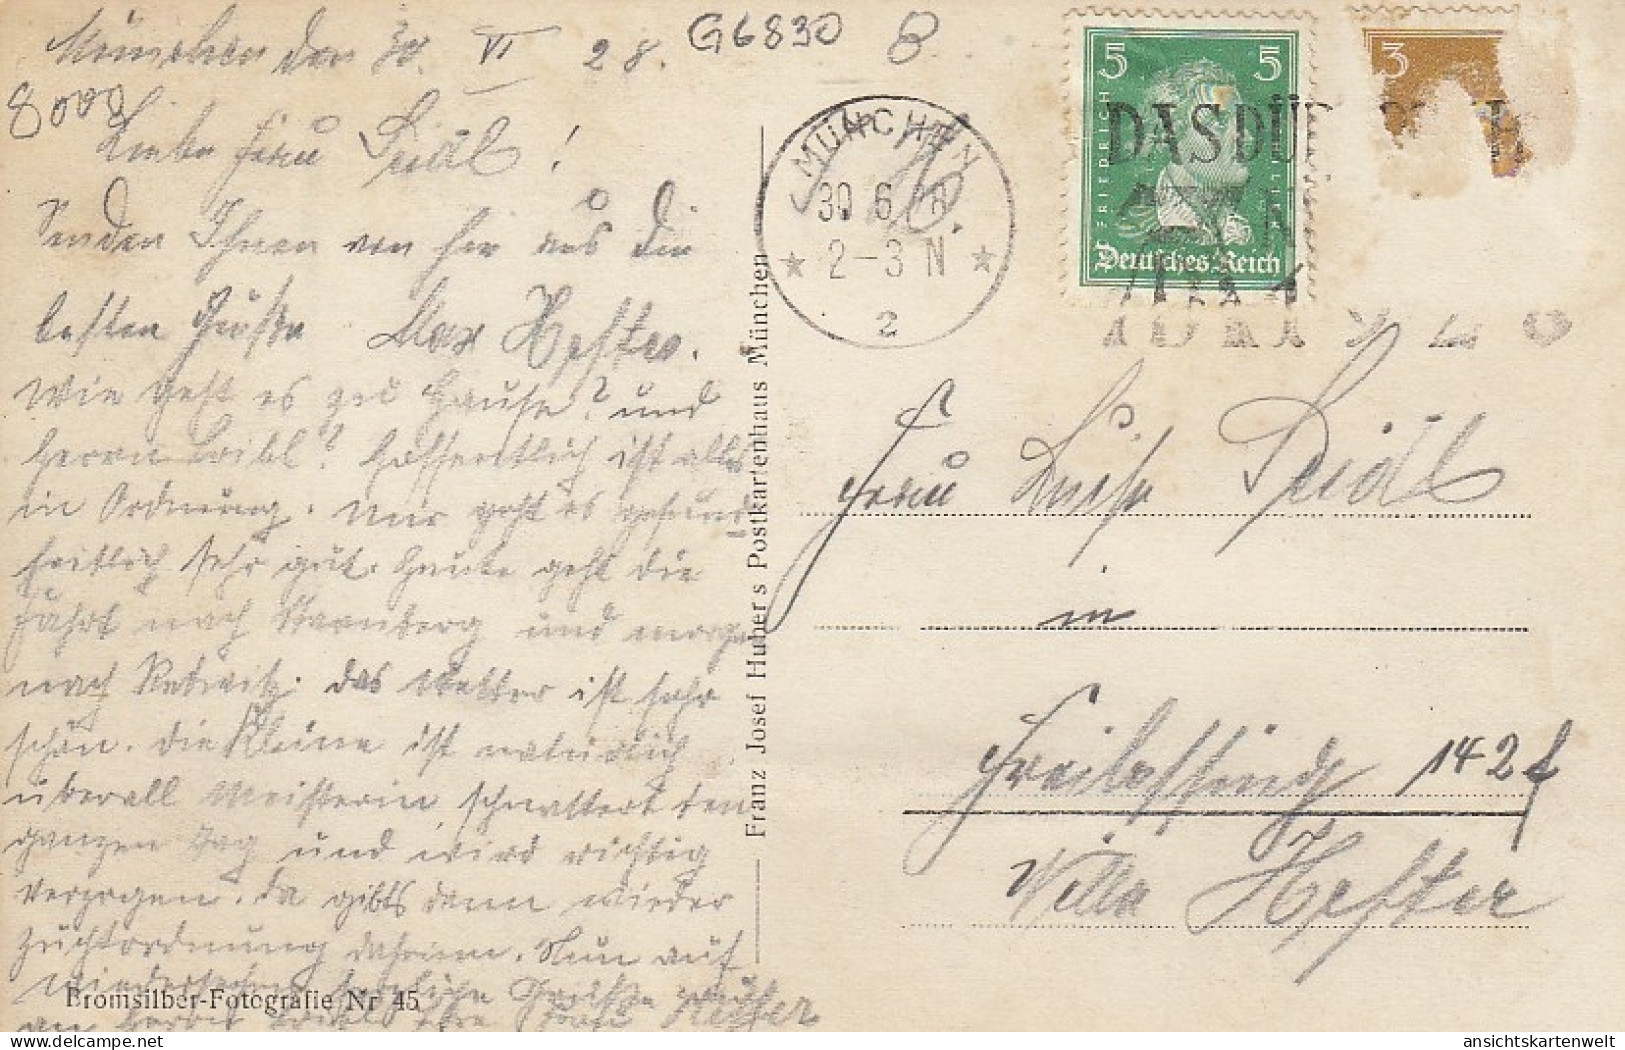 München den 30. VI 28.
G6830
8
8000
Liebe Frau Seidl!
Senden Ihnen von hier aus die
besten Grüße Max Hefter.
Wie geht es zu Hause? und
Herrn Loibl? Hoffentlich ist alles
in Ordnung. Mir geht es gesund-
heitlich sehr gut. Heute geht die
Fahrt nach Starnberg und morgen
nach . das Wetter ist sehr
schön. die Kleine ist natürlich
überall Meisterin, schnattert den
ganzen Tag und wird richtig
verzogen. da gibts dann wieder
Zuchtordnung daheim. Nun auf
Wiedersehen herzliche Grüße auch
an Herrn Loibl Ihre Frau Hefter
Bromsilber-Fotografie Nr 45
Franz Josef Huber's Postkartenhaus München
MÜNCHEN
30 6 28
2-3 N
2
5 5
FRIEDRICH
Deutsches Reich
3
DAS DÜ
Frau Luise Seidl
in
Freilassing 142 f
Villa Hefter
ansichtskartenwelt